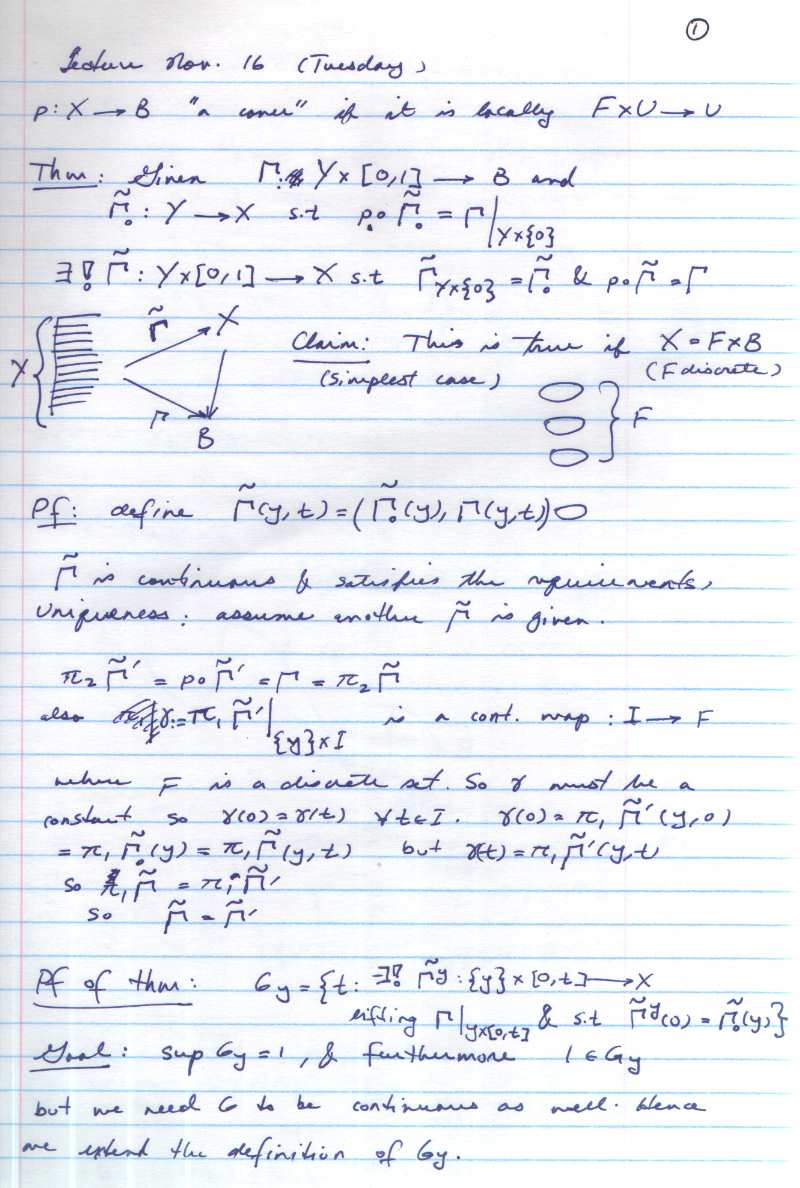 ①
Lecture Nov. 16 (Tuesday)
p: X → B "a cover" if it is locally F×U → U
Thm: Given Γ: Y×[0,1] → B and
Γ̃₀ : Y → X s.t p∘Γ̃₀ = Γ|Y×{0}
∃! Γ̃ : Y×[0,1] → X s.t Γ̃Y×{0} = Γ̃₀ & p∘Γ̃ = Γ
Y { Γ̃ X
Γ B
Claim: This is true if X = F×B
(simplest case) (F discrete)
} F
Pf: define Γ̃(y,t) = (Γ̃₀(y), Γ(y,t))
Γ̃ is continuous & satisfies the requirements.
Uniqueness: assume another Γ̃ is given.
π₂Γ̃' = p∘Γ̃' = Γ = π₂Γ̃
also γ := π₁Γ̃'|{y}×I is a cont. map : I → F
where F is a discrete set. So γ must be a
constant so γ(0) = γ(t) ∀t∈I. γ(0) = π₁Γ̃'(y,0)
= π₁Γ̃₀(y) = π₁Γ̃(y,t) but γ(t) = π₁Γ̃'(y,t
so π₁Γ̃ = π₁Γ̃'
so Γ̃ = Γ̃'
Pf of thm: Gy = {t: ∃! Γ̃ʸ : {y}×[0,t] → X
lifting Γ|y×[0,t] & s.t Γ̃ʸ(0) = Γ̃₀(y)}
Goal: sup Gy = 1, & furthermore 1 ∈ Gy
but we need G to be continuous as well. Hence
we extend the definition of Gy.